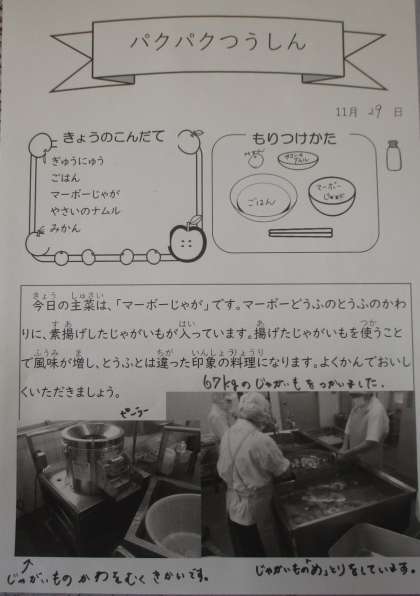 パクパクつうしん
11月 29 日
きょうのこんだて
ぎゅうにゅう
ごはん
マーボーじゃが
やさいのナムル
みかん
もりつけかた
みかん
ナムル
ごはん
マーボー
じゃが
今日の主菜は、「マーボーじゃが」です。マーボーどうふのとうふのかわ
りに、素揚げしたじゃがいもが入っています。揚げたじゃがいもを使うこと
で風味が増し、とうふとは違った印象の料理になります。よくかんでおいし
くいただきましょう。
67kgのじゃがいもをつかいました.
ピーラー
じゃがいものかわをむくきかいです。
じゃがいもの"め"とりをしています。